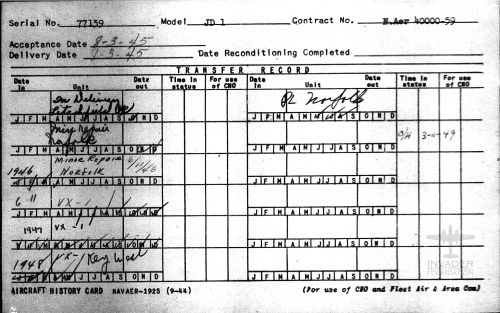 Serial No. 77139 Model JD 1 Contract No. N.Aer 40000-59
Acceptance Date 8-3-45
Delivery Date 8-3-45 Date Reconditioning Completed
TRANSFER RECORD
Date in Unit Date out Time in status For use of CNO Date in Unit Date out Time in status For use of CNO
In Delivery Pl Norfolk
J F M A M J J A S O N D J F M A M J J A S O N D
Norfolk 3-0-49
J F M A M J J A S O N D J F M A M J J A S O N D
1946 Minor Repair Norfolk
J F M A M J J A S O N D J F M A M J J A S O N D
6-11 VX-1
J F M A M J J A S O N D J F M A M J J A S O N D
1947 VX-1
J F M A M J J A S O N D J F M A M J J A S O N D
1948 VX-1 Key West
J F M A M J J A S O N D J F M A M J J A S O N D
AIRCRAFT HISTORY CARD NAVAER-1925 (9-44) (For use of CNO and Fleet Air & Area Com)
INVADER